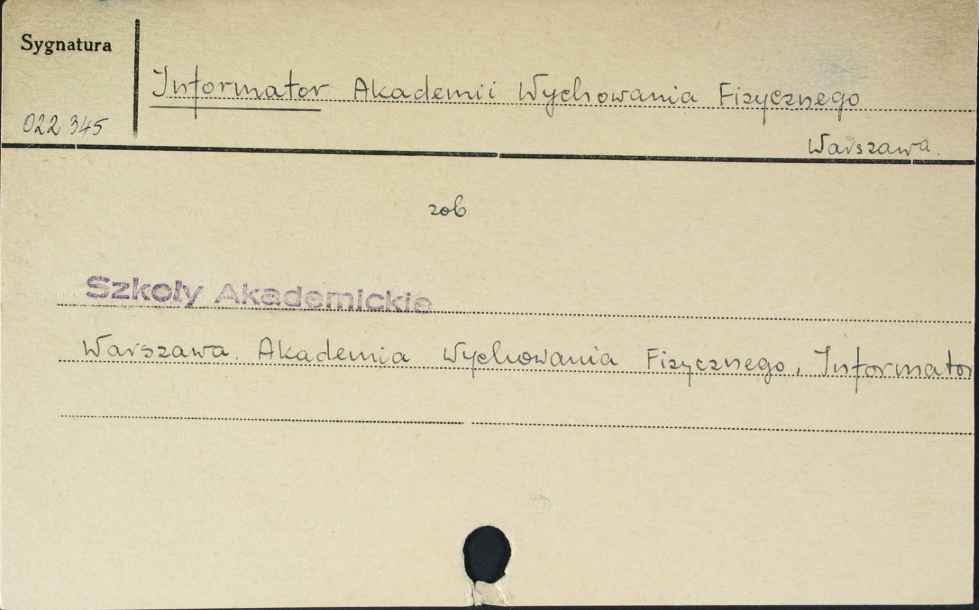 Sygnatura
Informator Akademii Wychowania Fizycznego
022 345
Warszawa.
zob
Szkoły Akademickie
Warszawa. Akademia Wychowania Fizycznego, Informator